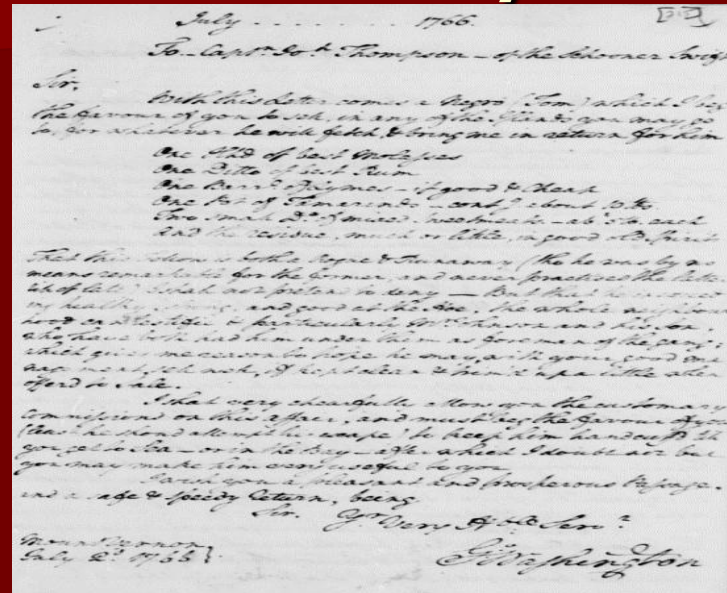 July 1766.
To Captn Jos. Thompson — of the Schooner Swift
Sir,
With this Letter comes a Negro (Tom) which I beg
the favour of you to sell, in any of the Islands you may go
to, for whatever he will fetch, & bring me in return for him
One Hhd of best Molasses
One Ditto of best Rum
One Barrl of Lymes — if good & Cheap
One Pot of Tamarinds — contg about 10 lbs.
Two small Do of mixed Sweetmeats — abt 5 lb. each
And the residue, much or little, in good old Spirits
That this Fellow is both a Rogue & Runaway (tho he was by no
means remarkable for the former, and never practised the latter
till of late) I shall not pretend to deny — But that he is exceed
ing healthy, strong, and good at the Hoe, the whole neighbour
hood can testifie & particularly Mr Johnson and his Son,
who have both had him under them as foreman of the gang;
which gives me reason to hope he may, with your good ma
nagement, sell well, if kept clean & trim'd up a little when
offerd to Sale.
I shall very chearfully allow you the customary
commissions on this affair, and must beg the favour of you
(least he shoud attempt his escape) to keep him handcuffd till
you get to Sea — or in the Bay — after which I doubt not but
you may make him very useful to you.
I wish you a pleasant and prosperous Passage,
and a safe & speedy return, being
Sir, Yr Very Hble Servt
Mount Vernon
July 2d 1766
GWashington